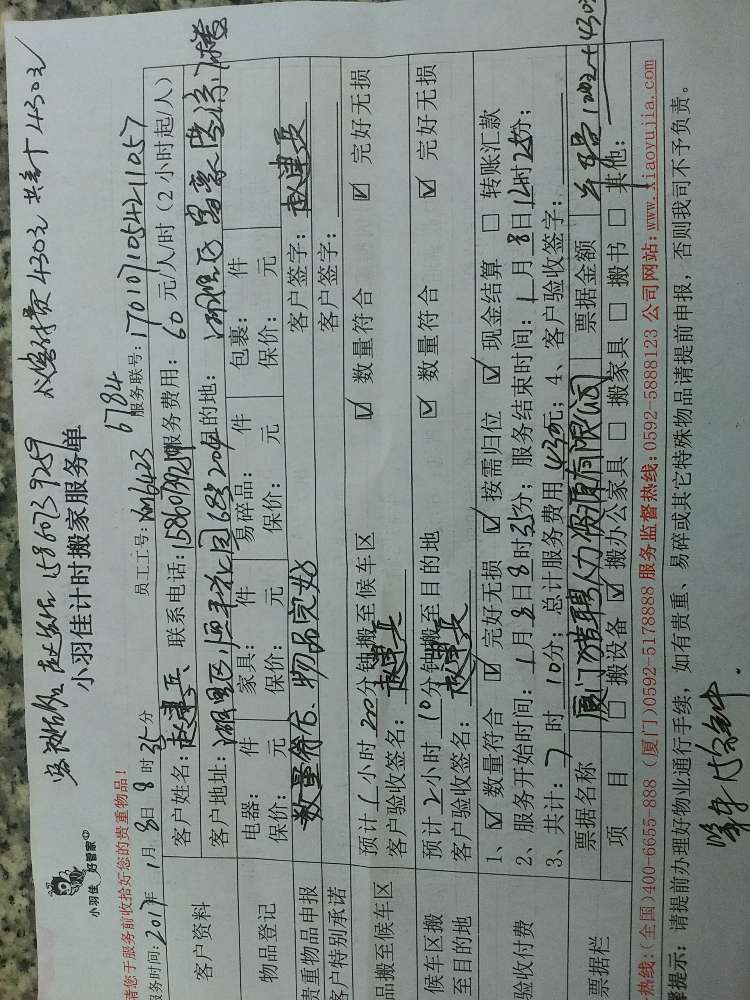 赵先生 15860739259 从实付费430元 共计430元
小羽佳 好管家
小羽佳计时搬家服务单
请您于服务前收拾好您的贵重物品!
员工工号: xm6423 6784
服务时间: 2017年 1月8日8时35分
服务联号: 1701071054211057
客户资料
客户姓名: 赵建兵 联系电话: 15860739259 服务费用: 60元/人/时 (2小时起/人)
客户地址: 湖里区 目的地: 湖里区
物品登记
电器: 件 家具: 件 易碎品: 件 包裹: 件
保价: 元 保价: 元 保价: 元 保价: 元
贵重物品申报 数量符合、物品完好 客户签字: 赵建兵
客户特别承诺 客户签字:
品搬至候车区
预计1小时20分钟搬至候车区 ☑ 数量符合 ☑ 完好无损
客户验收签名: 赵建兵
候车区搬至目的地
预计2小时10分钟搬至目的地 ☑ 数量符合 ☑ 完好无损
客户验收签名: 赵建兵
验收付费
1、☑ 数量符合 ☑ 完好无损 ☑ 按需归位 ☑ 现金结算 □ 转账汇款
2、服务开始时间: 1月8日8时35分; 服务结束时间: 1月8日
3、共计: 7时10分; 总计服务费用430元; 4、客户验收签字:
票据栏
票据名称 厦门 人力资源有限公司 票据金额
项 目 □ 搬设备 ☑ 搬办公家具 □ 搬家具 □ 搬书 □ 其他:
热线: (全国)400-6655-888 (厦门)0592-5178888 服务监督热线: 0592-5888123 公司网站: www.xiaoyujia.com
提示: 请提前办理好物业通行手续, 如有贵重、易碎或其它特殊物品请提前申报, 否则我司不予负责。